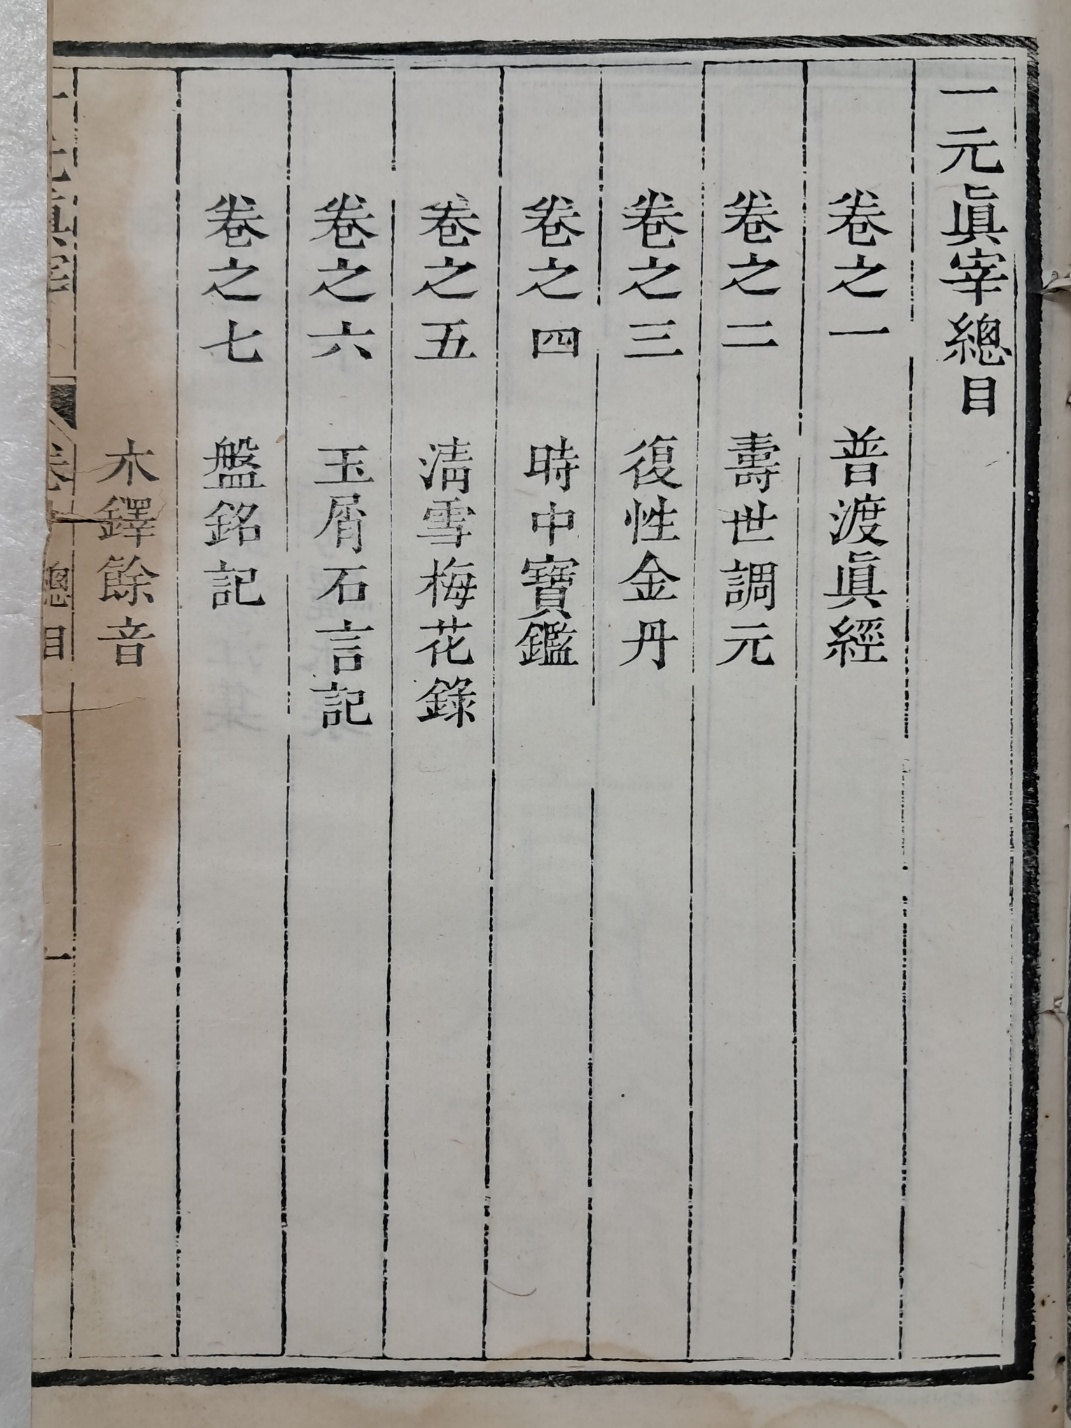 一元眞宰總目
卷之一　普渡眞經
卷之二　壽世調元
卷之三　復性金丹
卷之四　時中寶鑑
卷之五　清雪梅花錄
卷之六　玉屑石言記
卷之七　盤銘記
木鐸餘音
一元眞宰　卷　總目　一